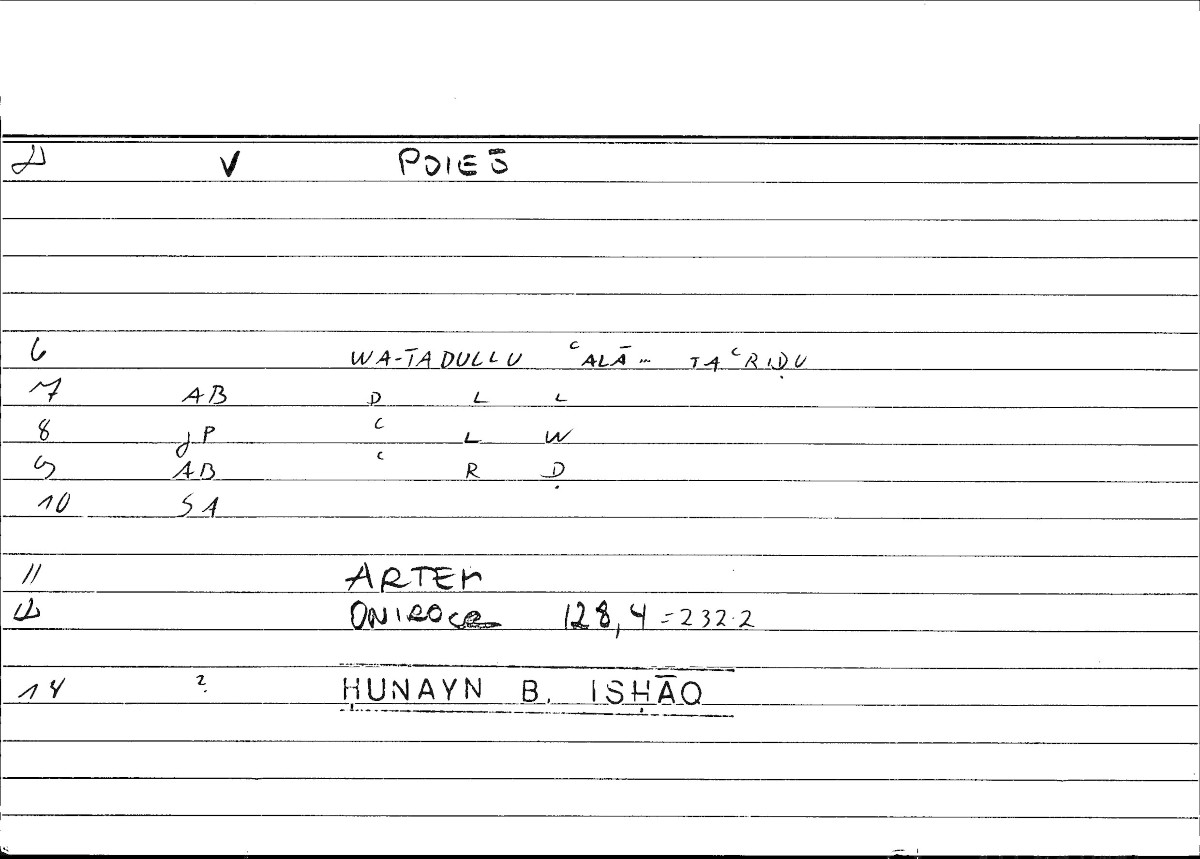 V POIEŌ
6 WA-TADULLU ʿALĀ... TAʿRIḌU
7 AB D L L
8 gP ʿ L W
9 AB ʿ R Ḍ
10 SA
11 ARTEM
12 ONIROCR 128,4 = 232.2
14 2. ḤUNAYN B. ISḤĀQ